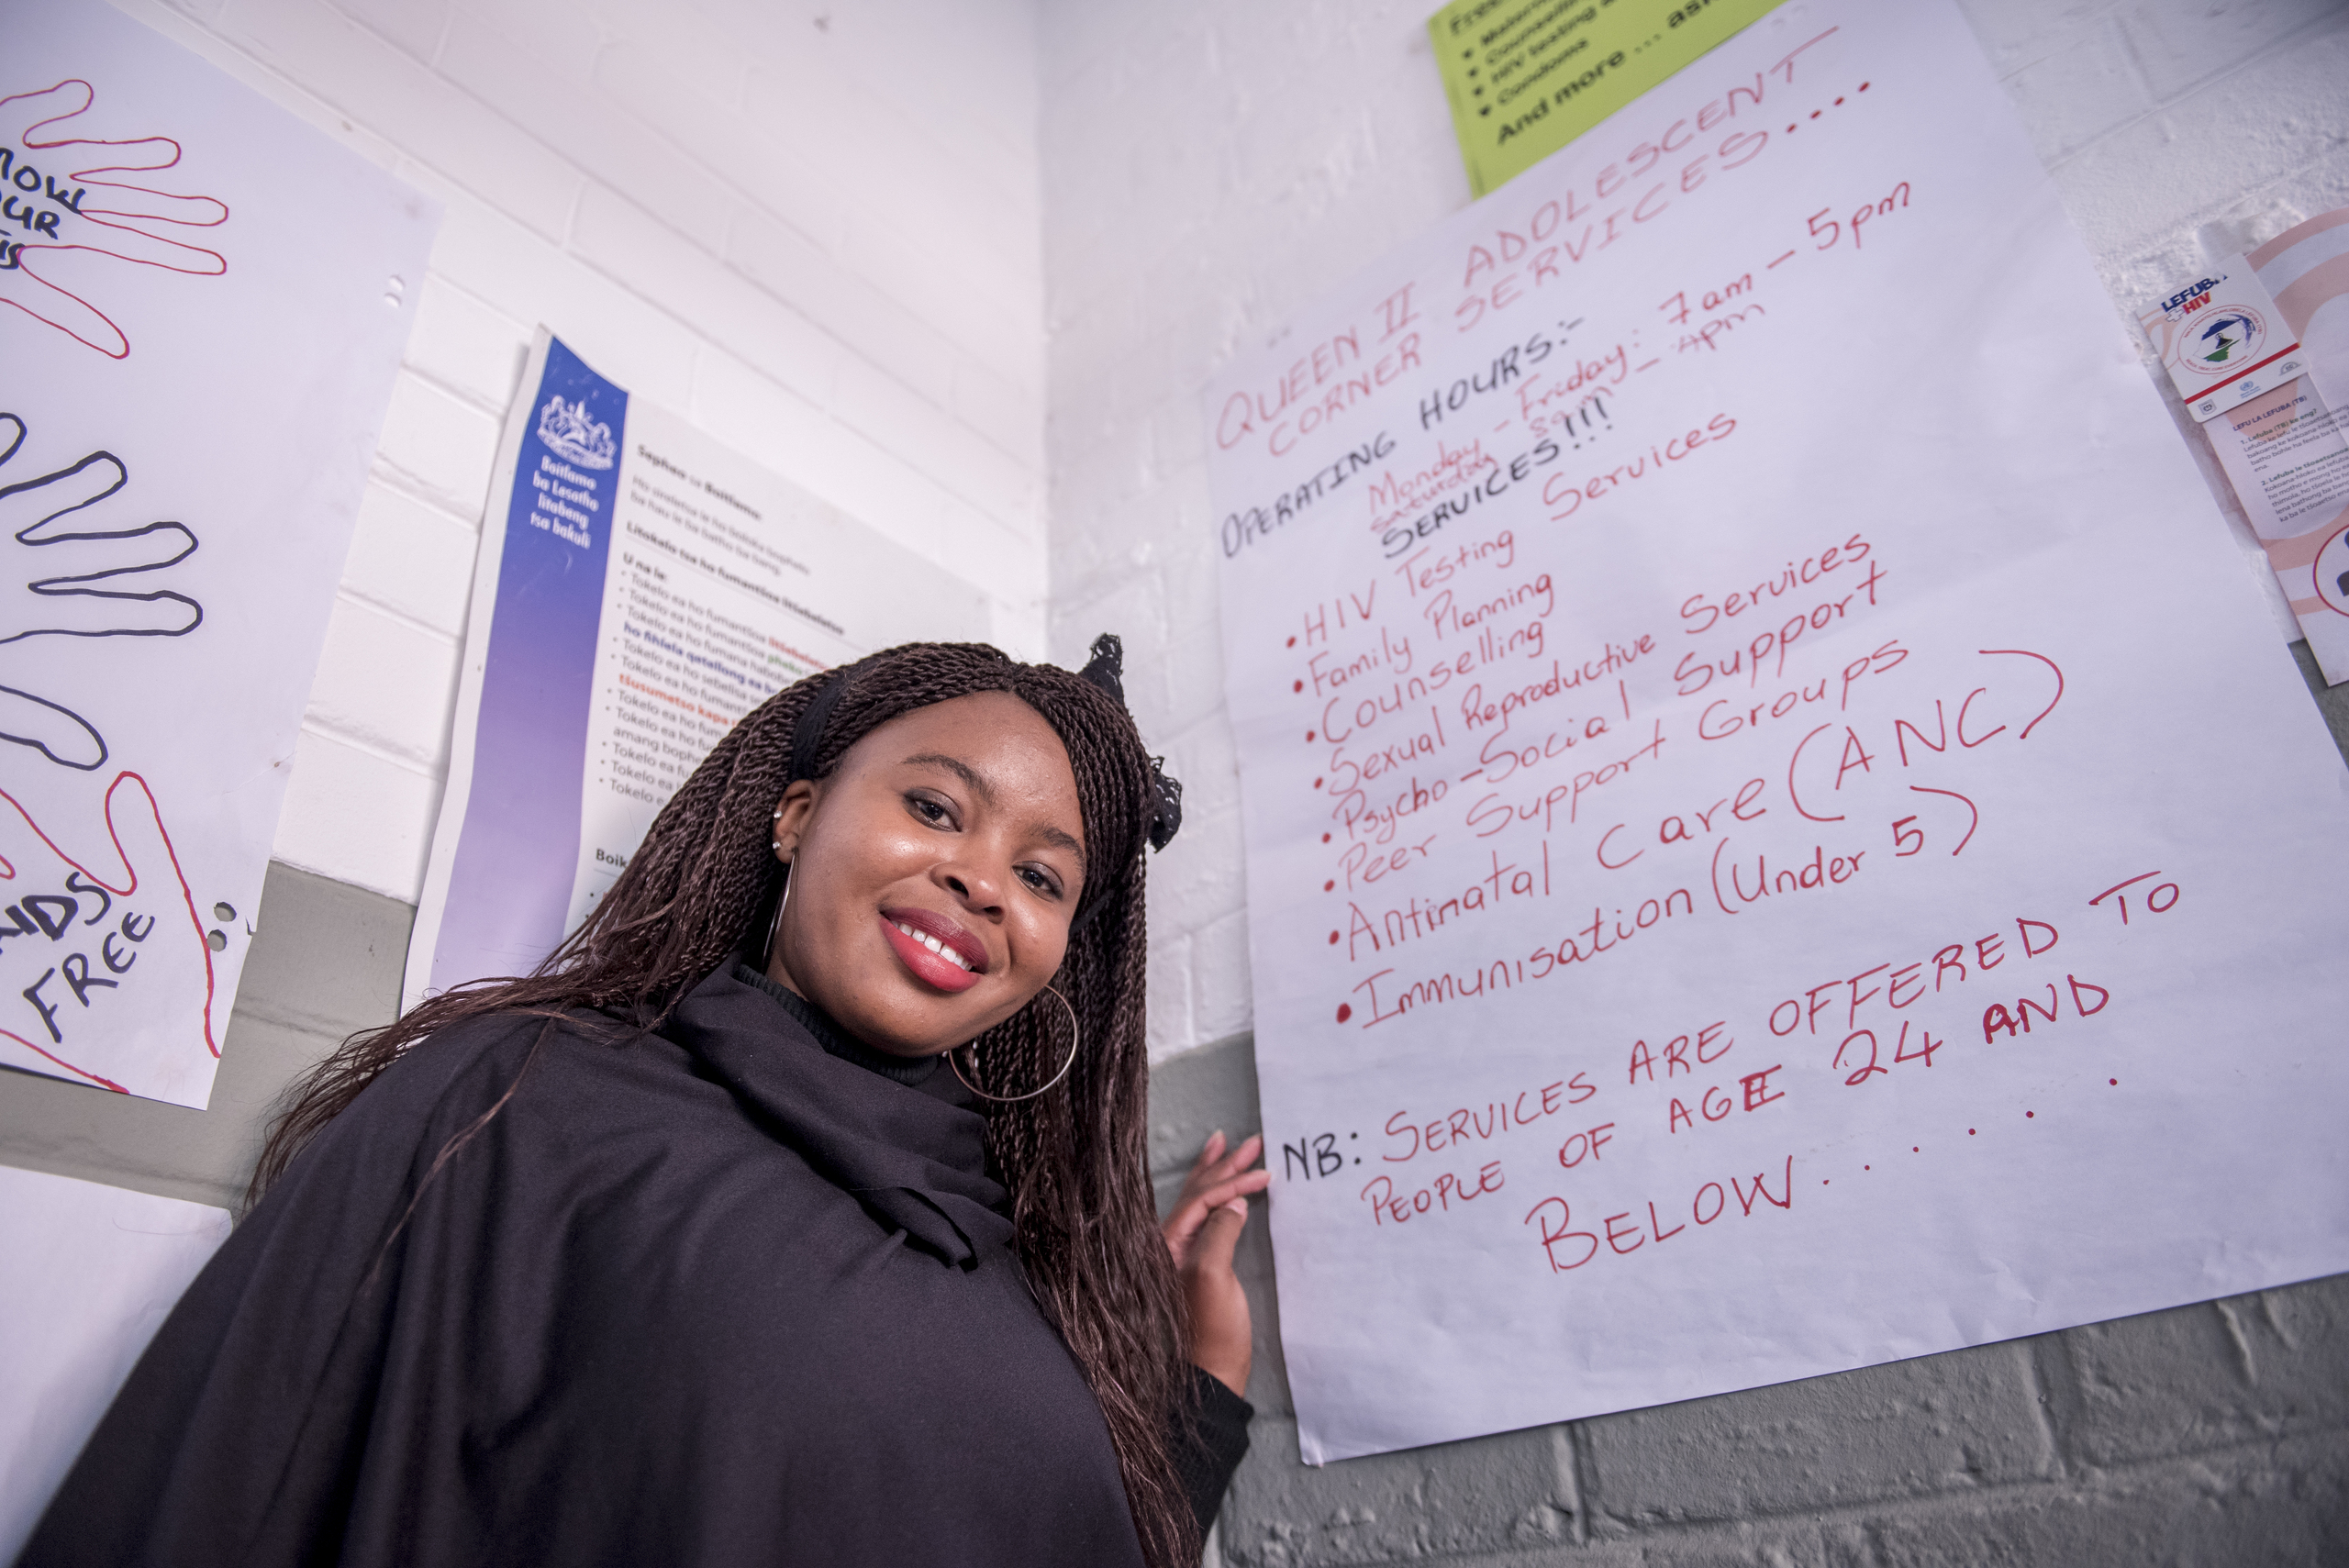 OUR
NDS
FREE
Boitlamo
ba Lesotho
litabeng
tsa bakuli
Sepheo sa Boitlamo:
Litokelo tsa ho fumantšoa litšebeletso
U na le:
• Tokelo ea ho fumantšoa
• Tokelo ea ho fumantšoa
• Tokelo ea ho fumana
• Tokelo ea ho sebelisa
• Tokelo ea ho
• Tokelo ea ho
• Tokelo ea ho
amang
• Tokelo ea
• Tokelo ea
• Tokelo e
Boik
• Counselling
• HIV testing
• Condoms
And more ... ask
QUEEN II ADOLESCENT
CORNER SERVICES....
OPERATING HOURS:-
Monday - Friday: 7am - 5pm
Saturday 8am - 4pm
SERVICES!!!
• HIV Testing Services
• Family Planning
• Counselling
• Sexual Reproductive Services
• Psycho-Social Support
• Peer Support Groups
• Antinatal Care (ANC)
• Immunisation (Under 5)
NB: SERVICES ARE OFFERED TO
PEOPLE OF AGE 24 AND
BELOW......
LEFUBA
+HIV
LEFU LA LEFUBA (TB)
1. Lefuba (TB) ke eng?